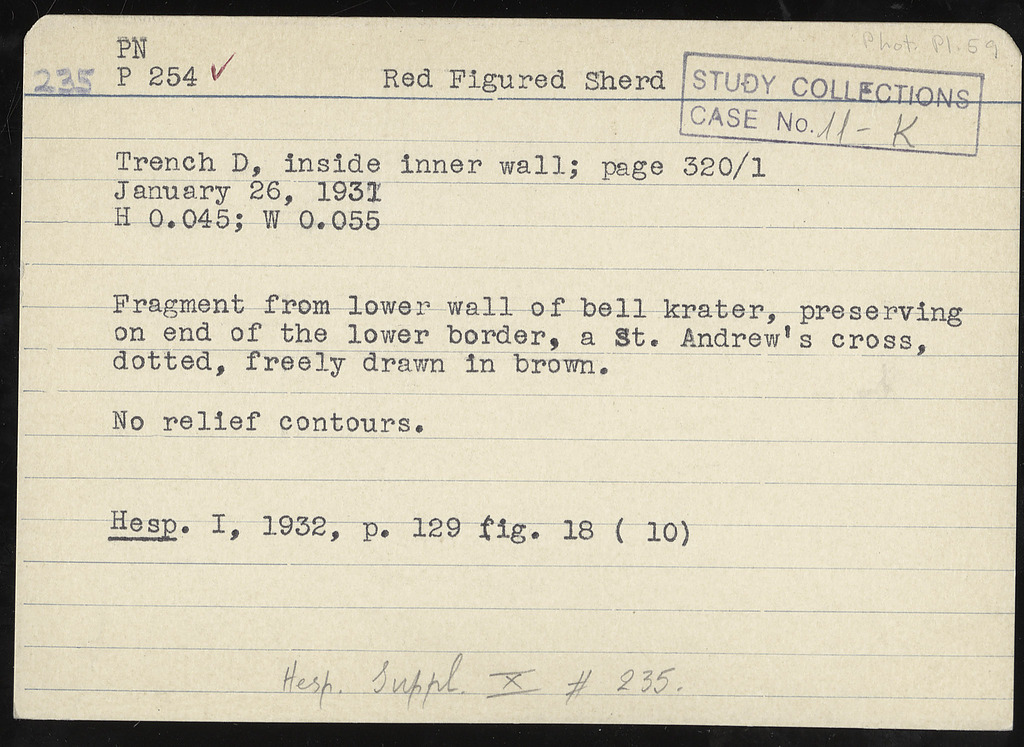 Phot. Pl. 59
PN
235 P 254 ✓ Red Figured Sherd
STUDY COLLECTIONS
CASE No. 11 - K
Trench D, inside inner wall; page 320/1
January 26, 1931
H 0.045; W 0.055
Fragment from lower wall of bell krater, preserving
on end of the lower border, a St. Andrew's cross,
dotted, freely drawn in brown.
No relief contours.
Hesp. I, 1932, p. 129 fig. 18 ( 10)
Hesp. Suppl. X # 235.